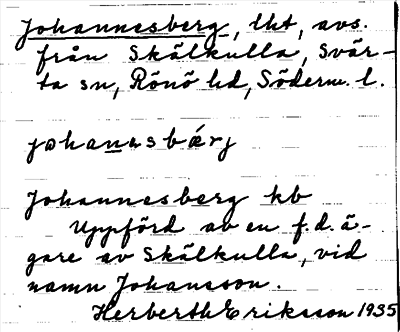 Johannesberg, lht, avs.
från Skälkulla, Svär-
ta sn, Rönö hd, Söderm. l.
johanasbǽrj
Johannesberg kb
Uppförd av en f.d. ä-
gare av Skälkulla, vid
namn Johansson.
Herberth Eriksson 1935